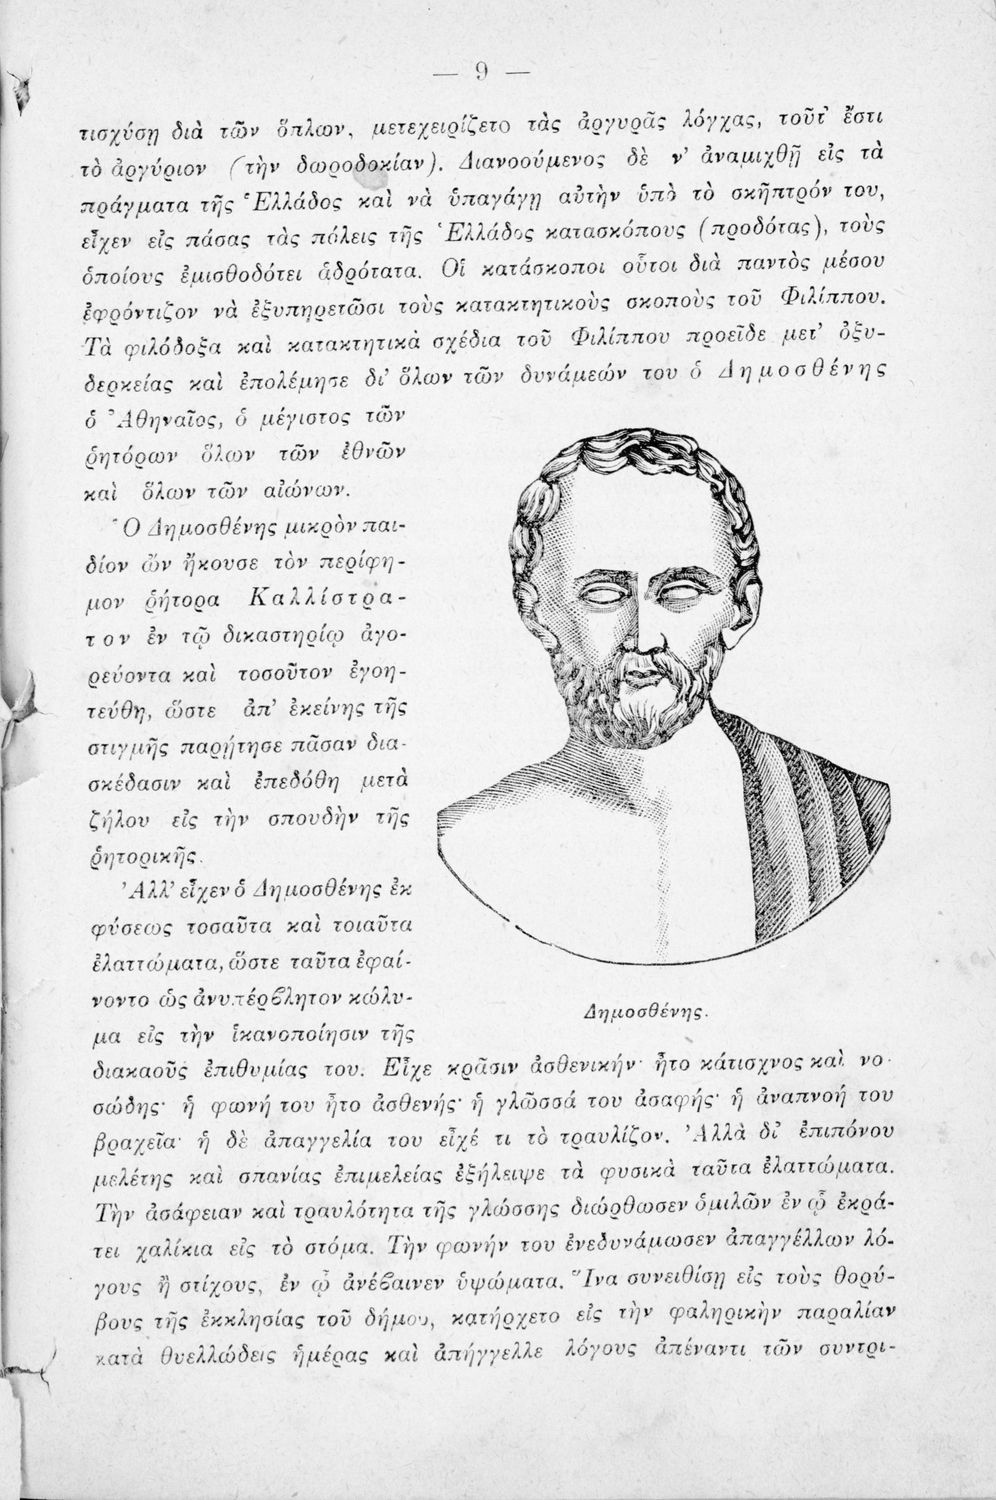 — 9 —
τισχύσῃ διὰ τῶν ὅπλων, μετεχειρίζετο τὰς ἀργυρᾶς λόγχας, τοῦτ' ἔστι
τὸ ἀργύριον (τὴν δωροδοκίαν). Διανοούμενος δὲ ν' ἀναμιχθῇ εἰς τὰ
πράγματα τῆς Ἑλλάδος καὶ νὰ ὑπαγάγῃ αὐτὴν ὑπὸ τὸ σκῆπτρόν του,
εἶχεν εἰς πάσας τὰς πόλεις τῆς Ἑλλάδος κατασκόπους (προδότας), τοὺς
ὁποίους ἐμισθοδότει ἁδρότατα. Οἱ κατάσκοποι οὗτοι διὰ παντὸς μέσου
ἐφρόντιζον νὰ ἐξυπηρετῶσι τοὺς κατακτητικοὺς σκοποὺς τοῦ Φιλίππου.
Τὰ φιλόδοξα καὶ κατακτητικὰ σχέδια τοῦ Φιλίππου προεῖδε μετ' ὀξυ-
δερκείας καὶ ἐπολέμησε δι' ὅλων τῶν δυνάμεών του ὁ Δημοσθένης
ὁ Ἀθηναῖος, ὁ μέγιστος τῶν
ῥητόρων ὅλων τῶν ἐθνῶν
καὶ ὅλων τῶν αἰώνων.
Ὁ Δημοσθένης μικρὸν παι-
δίον ὢν ἤκουσε τὸν περίφη-
μον ῥήτορα Καλλίστρα-
τον ἐν τῷ δικαστηρίῳ ἀγο-
ρεύοντα καὶ τοσοῦτον ἐγοη-
τεύθη, ὥστε ἀπ' ἐκείνης τῆς
στιγμῆς παρῄτησε πᾶσαν δια-
σκέδασιν καὶ ἐπεδόθη μετὰ
ζήλου εἰς τὴν σπουδὴν τῆς
ῥητορικῆς.
Ἀλλ' εἶχεν ὁ Δημοσθένης ἐκ
φύσεως τοσαῦτα καὶ τοιαῦτα
ἐλαττώματα, ὥστε ταῦτα ἐφαί-
νοντο ὡς ἀνυπέρβλητον κώλυ-
μα εἰς τὴν ἱκανοποίησιν τῆς
Δημοσθένης.
διακαοῦς ἐπιθυμίας του. Εἶχε κρᾶσιν ἀσθενικήν· ἦτο κάτισχνος καὶ νο-
σώδης· ἡ φωνή του ἦτο ἀσθενής· ἡ γλῶσσά του ἀσαφής· ἡ ἀναπνοή του
βραχεῖα· ἡ δὲ ἀπαγγελία του εἶχέ τι τὸ τραυλίζον. Ἀλλὰ δι' ἐπιπόνου
μελέτης καὶ σπανίας ἐπιμελείας ἐξήλειψε τὰ φυσικὰ ταῦτα ἐλαττώματα.
Τὴν ἀσάφειαν καὶ τραυλότητα τῆς γλώσσης διώρθωσεν ὁμιλῶν ἐν ᾧ ἐκρά-
τει χαλίκια εἰς τὸ στόμα. Τὴν φωνήν του ἐνεδυνάμωσεν ἀπαγγέλλων λό-
γους ἢ στίχους, ἐν ᾧ ἀνέβαινεν ὑψώματα. Ἵνα συνειθίσῃ εἰς τοὺς θορύ-
βους τῆς ἐκκλησίας τοῦ δήμου, κατήρχετο εἰς τὴν φαληρικὴν παραλίαν
κατὰ θυελλώδεις ἡμέρας καὶ ἀπήγγελλε λόγους ἀπέναντι τῶν συντρι-